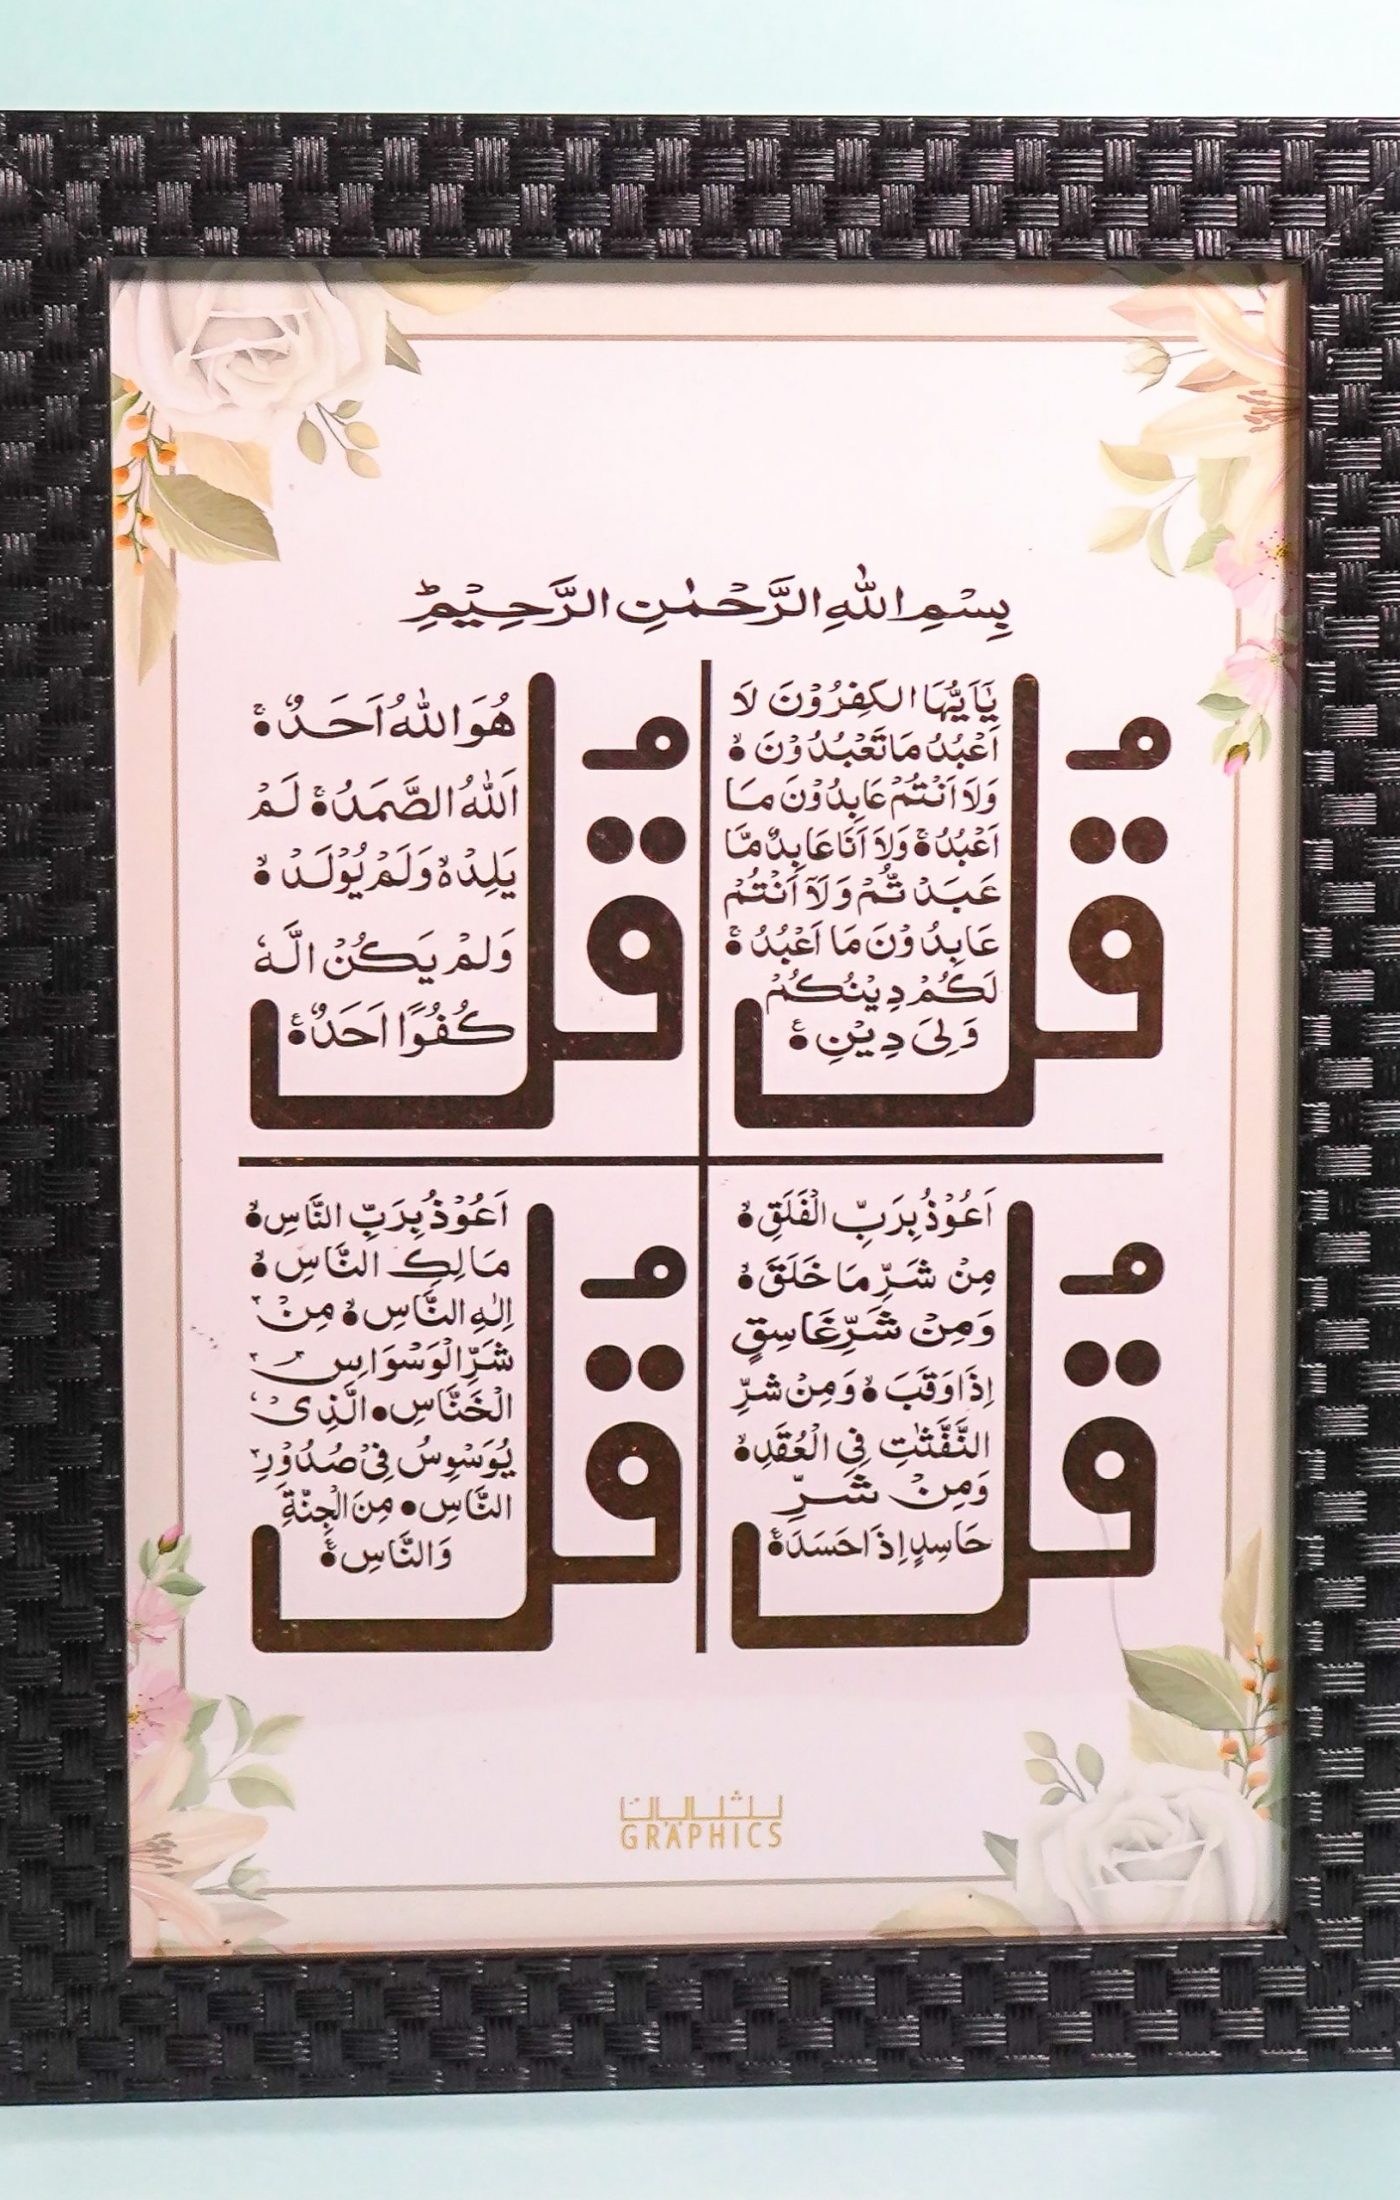 بِسْمِ اللهِ الرَّحْمٰنِ الرَّحِيْمِ
قُل
يٰٓاَيُّهَا الْكٰفِرُوْنَ لَا
اَعْبُدُ مَا تَعْبُدُوْنَ
وَلَا اَنْتُمْ عَابِدُوْنَ مَا
اَعْبُدُ وَلَا اَنَا عَابِدٌ مَّا
عَبَدْتُّمْ وَلَآ اَنْتُمْ
عَابِدُوْنَ مَا اَعْبُدُ
لَكُمْ دِيْنُكُمْ
وَلِيَ دِيْنِ
قُل
هُوَ اللهُ اَحَدٌ
اَللهُ الصَّمَدُ لَمْ
يَلِدْ وَلَمْ يُوْلَدْ
وَلَمْ يَكُنْ لَّهٗ
كُفُوًا اَحَدٌ
قُل
اَعُوْذُ بِرَبِّ الْفَلَقِ
مِنْ شَرِّ مَا خَلَقَ
وَمِنْ شَرِّ غَاسِقٍ
اِذَا وَقَبَ وَمِنْ شَرِّ
النَّفّٰثٰتِ فِي الْعُقَدِ
وَمِنْ شَرِّ
حَاسِدٍ اِذَا حَسَدَ
قُل
اَعُوْذُ بِرَبِّ النَّاسِ
مَالِكِ النَّاسِ
اِلٰهِ النَّاسِ مِنْ
شَرِّ الْوَسْوَاسِ
الْخَنَّاسِ الَّذِىْ
يُوَسْوِسُ فِىْ صُدُوْرِ
النَّاسِ مِنَ الْجِنَّةِ
وَالنَّاسِ
GRAPHICS